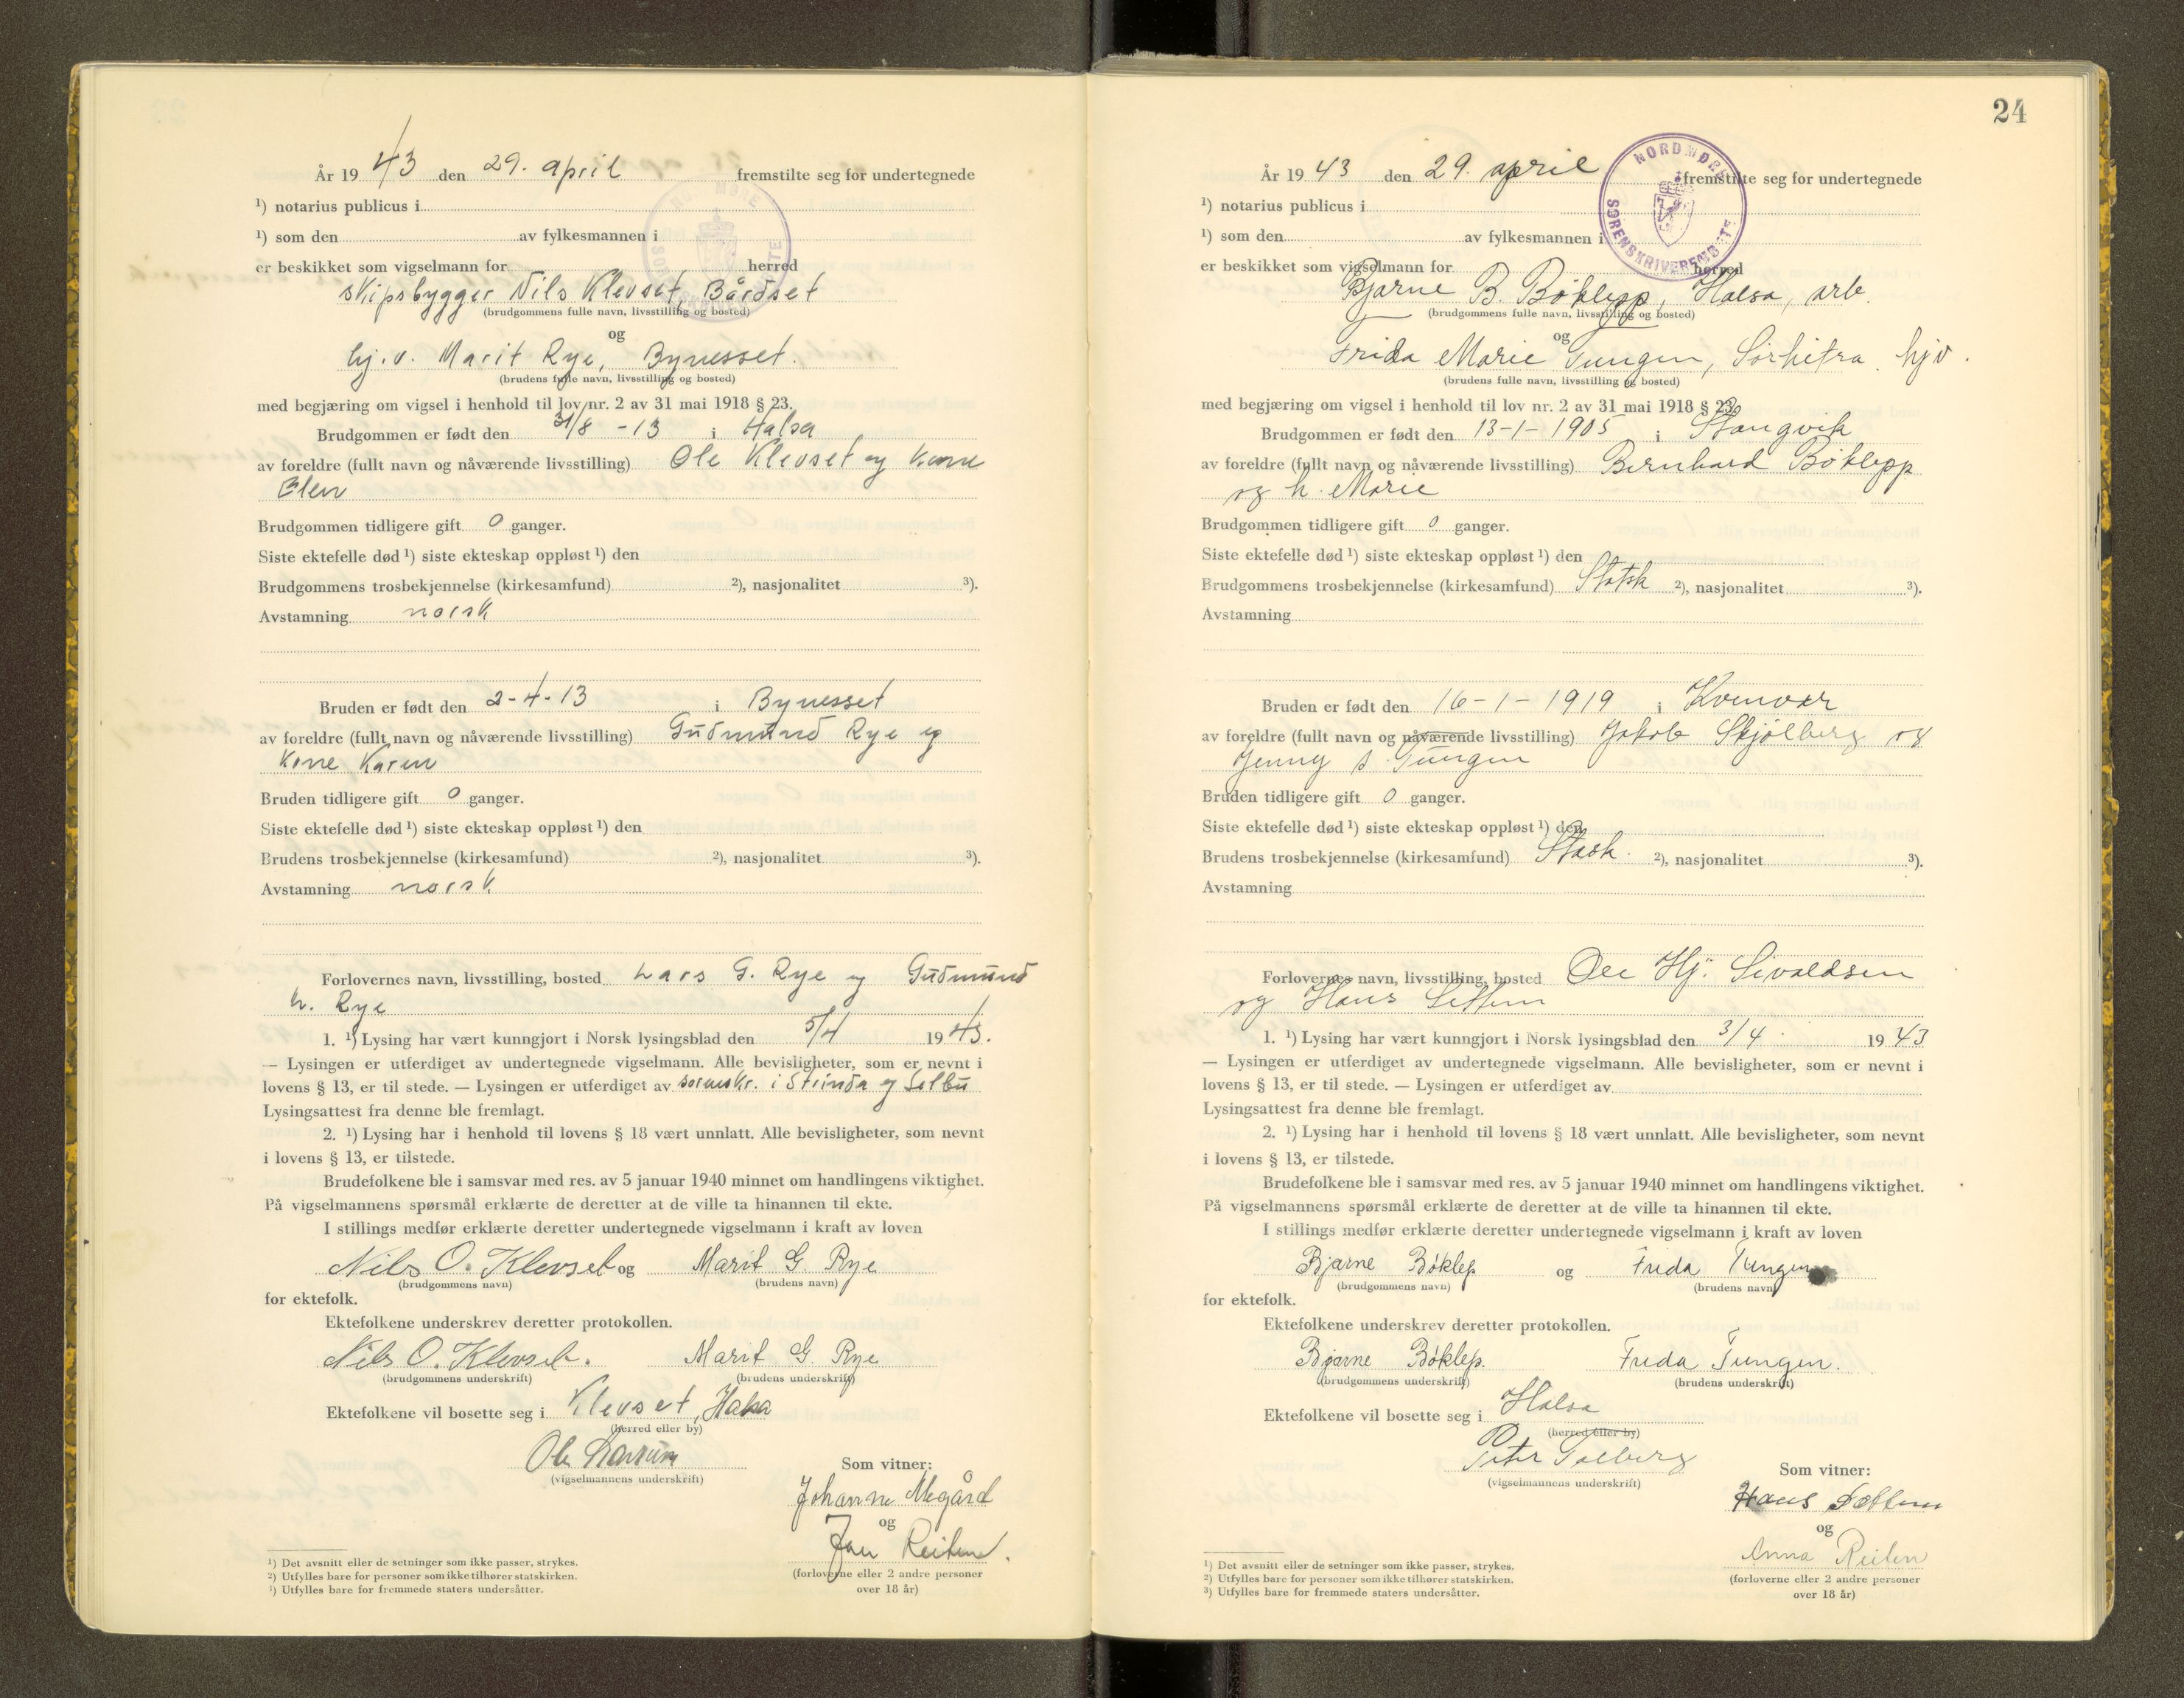 År 19 43 den 29. april fremstilte seg for undertegnede
¹) notarius publicus i
¹) som den av fylkesmannen i
er beskikket som vigselmann for herred
skipsbygger Nils Klevset, Bårdset
(brudgommens fulle navn, livsstilling og bosted)
og
hj.v. Marit Rye, Bynesset.
(brudens fulle navn, livsstilling og bosted)
med begjæring om vigsel i henhold til lov nr. 2 av 31 mai 1918 § 23.
Brudgommen er født den 31/8 -13 i Halsa
av foreldre (fullt navn og nåværende livsstilling) Ole Klevset og kone
Elen
Brudgommen tidligere gift 0 ganger.
Siste ektefelle død ¹) siste ekteskap oppløst ¹) den
Brudgommens trosbekjennelse (kirkesamfund) ²), nasjonalitet ³).
Avstamning norsk
Bruden er født den 2-4-13 i Bynesset
av foreldre (fullt navn og nåværende livsstilling) Gudmund Rye og
kone Karen
Bruden tidligere gift 0 ganger.
Siste ektefelle død ¹) siste ekteskap oppløst ¹) den
Brudens trosbekjennelse (kirkesamfund) ²), nasjonalitet ³).
Avstamning norsk
Forlovernes navn, livsstilling, bosted Lars G. Rye og Gudmund
L. Rye
1. ¹) Lysing har vært kunngjort i Norsk lysingsblad den 5/4 19 43.
— Lysingen er utferdiget av undertegnede vigselmann. Alle bevisligheter, som er nevnt i
lovens § 13, er til stede. — Lysingen er utferdiget av sorenskr. i Strinda og Selbu
Lysingsattest fra denne ble fremlagt.
2. ¹) Lysing har i henhold til lovens § 18 vært unnlatt. Alle bevisligheter, som nevnt
i lovens § 13, er tilstede.
Brudefolkene ble i samsvar med res. av 5 januar 1940 minnet om handlingens viktighet.
På vigselmannens spørsmål erklærte de deretter at de ville ta hinannen til ekte.
I stillings medfør erklærte deretter undertegnede vigselmann i kraft av loven
Nils O. Klevset og Marit G. Rye
(brudgommens navn) (brudens navn)
for ektefolk.
Ektefolkene underskrev deretter protokollen.
Nils O. Klevset. Marit G. Rye
(brudgommens underskrift) (brudens underskrift)
Ektefolkene vil bosette seg i Klevset, Halsa
(herred eller by)
Ole
(vigselmannens underskrift)
Som vitner:
Johanne Megård
og
Jan Reiten.
(forloverne eller 2 andre personer
over 18 år)
¹) Det avsnitt eller de setninger som ikke passer, strykes.
²) Utfylles bare for personer som ikke tilhører statskirken.
³) Utfylles bare for fremmede staters undersåtter.
24
NORDMØRE
SORENSKRIVEREMBETE
År 19 43 den 29. april fremstilte seg for undertegnede
¹) notarius publicus i
¹) som den av fylkesmannen i
er beskikket som vigselmann for herred
Bjarne B. Böklepp, Halsa, arb.
(brudgommens fulle navn, livsstilling og bosted)
og
Frida Marie Tungen, Sørhitra. hjv.
(brudens fulle navn, livsstilling og bosted)
med begjæring om vigsel i henhold til lov nr. 2 av 31 mai 1918 § 23.
Brudgommen er født den 13-1-1905 i Stangvik
av foreldre (fullt navn og nåværende livsstilling) Bernhard Böklepp
og h. Marie
Brudgommen tidligere gift 0 ganger.
Siste ektefelle død ¹) siste ekteskap oppløst ¹) den
Brudgommens trosbekjennelse (kirkesamfund) Statsk ²), nasjonalitet ³).
Avstamning
Bruden er født den 16-1-1919 i Kvenvær
av foreldre (fullt navn og nåværende livsstilling) Jakob Skjölberg og
Jenny s. Tungen
Bruden tidligere gift 0 ganger.
Siste ektefelle død ¹) siste ekteskap oppløst ¹) den
Brudens trosbekjennelse (kirkesamfund) Stask. ²), nasjonalitet ³).
Avstamning
Forlovernes navn, livsstilling, bosted Ole Hj. Sivaldsen
og Hans Settem
1. ¹) Lysing har vært kunngjort i Norsk lysingsblad den 3/4. 19 43
— Lysingen er utferdiget av undertegnede vigselmann. Alle bevisligheter, som er nevnt i
lovens § 13, er til stede. — Lysingen er utferdiget av
Lysingsattest fra denne ble fremlagt.
2. ¹) Lysing har i henhold til lovens § 18 vært unnlatt. Alle bevisligheter, som nevnt
i lovens § 13, er tilstede.
Brudefolkene ble i samsvar med res. av 5 januar 1940 minnet om handlingens viktighet.
På vigselmannens spørsmål erklærte de deretter at de ville ta hinannen til ekte.
I stillings medfør erklærte deretter undertegnede vigselmann i kraft av loven
Bjarne Böklep og Frida Tungen
(brudgommens navn) (brudens navn)
for ektefolk.
Ektefolkene underskrev deretter protokollen.
Bjarne Böklep. Frida Tungen.
(brudgommens underskrift) (brudens underskrift)
Ektefolkene vil bosette seg i Halsa
(herred eller by)
Peter Solberg
(vigselmannens underskrift)
Som vitner:
Hans Settem
og
Anna Reiten
(forloverne eller 2 andre personer
over 18 år)
¹) Det avsnitt eller de setninger som ikke passer, strykes.
²) Utfylles bare for personer som ikke tilhører statskirken.
³) Utfylles bare for fremmede staters undersåtter.